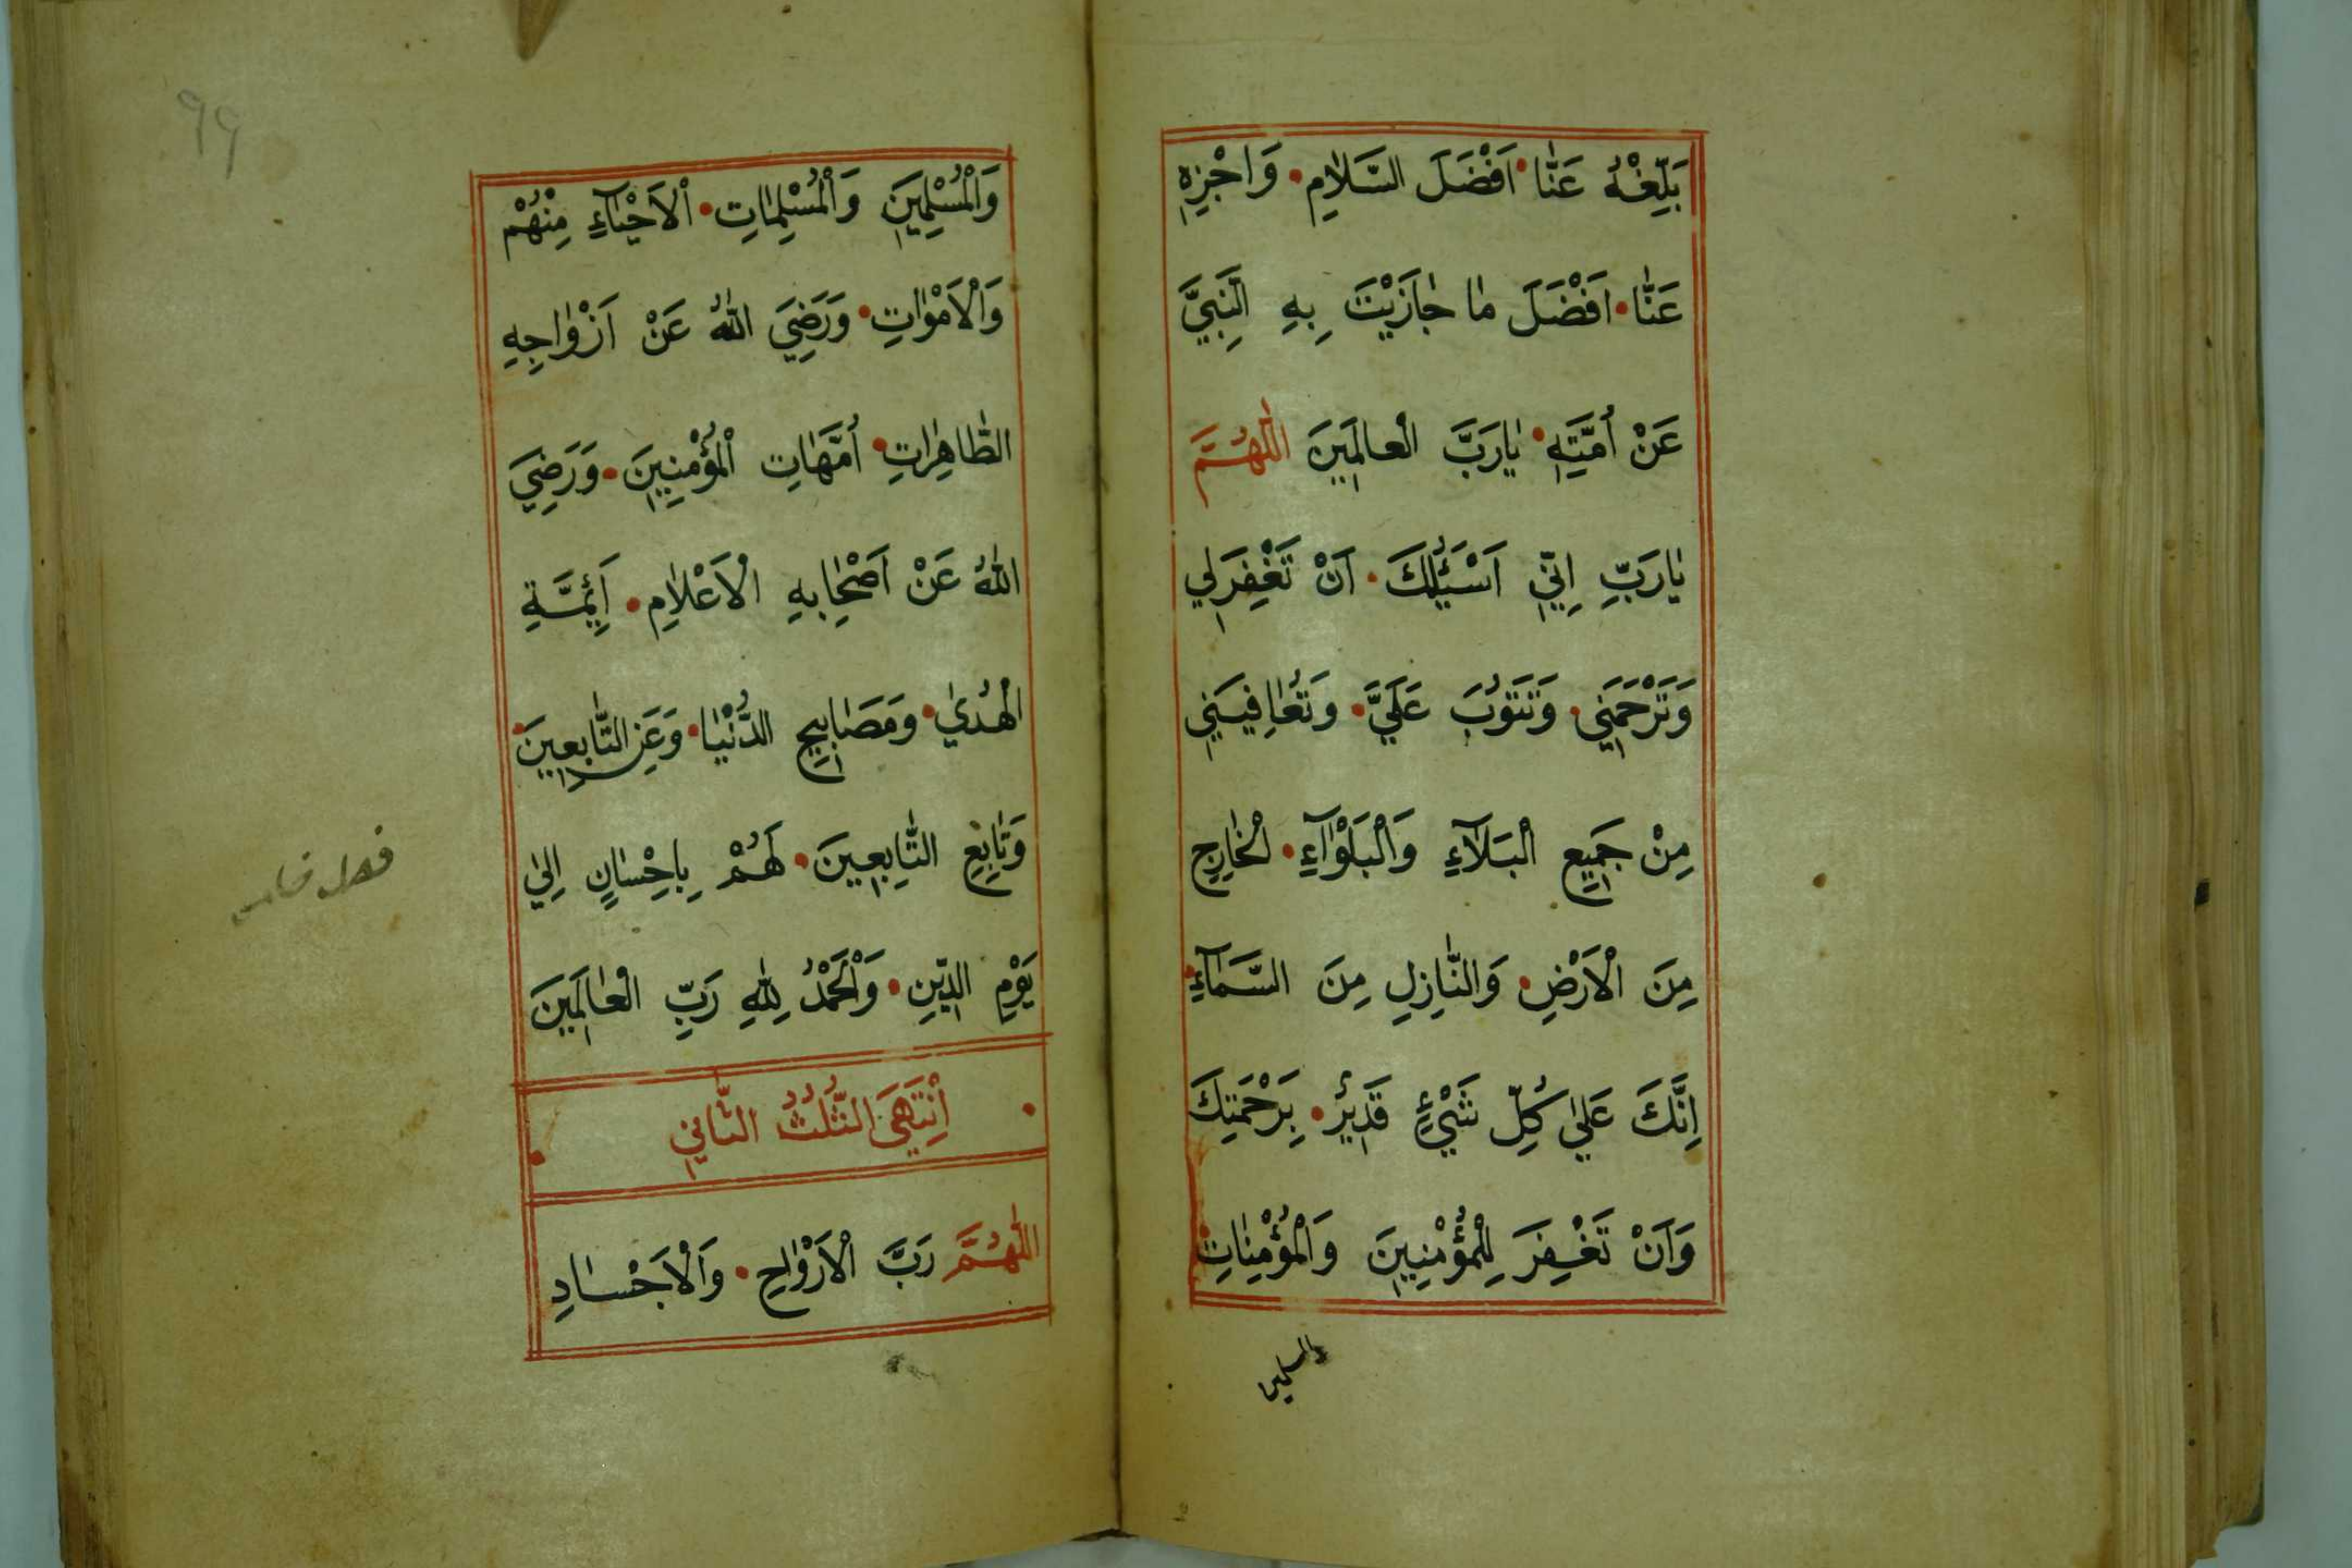 بَلِّغْهُ عَنَّا • اَفْضَلَ السَّلاٰمِ • وَاجْزِهٖ
عَنَّا • اَفْضَلَ مٰا جٰازَيْتَ بِهِ النَّبِيَّ
عَنْ اُمَّتِهٖ • يٰارَبَّ الْعالَمِينَ اللّٰهُمَّ
يٰارَبِّ اِنِّي اَسْئَلُكَ • اَنْ تَغْفِرَلِي
وَتَرْحَمَنِي • وَتَتُوْبَ عَلَيَّ • وَتُعٰافِيَنِي
مِنْ جَمِيعِ الْبَلَآءِ وَالْبَلْوٰآءِ • الْخٰارِجِ
مِنَ الْاَرْضِ • وَالنّٰازِلِ مِنَ السَّمٰآءِ •
اِنَّكَ عَلٰي كُلِّ شَيْءٍ قَدِيرٌ • بِرَحْمَتِكَ
وَاَنْ تَغْفِرَ لِلْمُؤْمِنِينَ وَالْمُؤْمِنٰاتِ •
والمسلمين
٩٩
وَالْمُسْلِمِينَ وَالْمُسْلِمٰاتِ • الْاَحْيٰآءِ مِنْهُمْ
وَالْاَمْوٰاتِ • وَرَضِيَ اللّٰهُ عَنْ اَزْوٰاجِهِ
الطّٰاهِرٰاتِ • اُمَّهٰاتِ الْمُؤْمِنِينَ • وَرَضِيَ
اللّٰهُ عَنْ اَصْحٰابِهِ الْاَعْلاٰمِ • اَئِمَّةِ
الْهُدٰي • وَمَصَابِيحِ الدُّنْيٰا • وَعَنِ التّٰابِعِينَ •
وَتٰابِعِ التّٰابِعِينَ • لَهُمْ بِاِحْسٰانٍ اِلٰي
يَوْمِ الدِّينِ • وَالْحَمْدُ لِلّٰهِ رَبِّ الْعٰالَمِينَ
اِنْتَهَيَ الثُّلُثُ الثَّانِي
اللّٰهُمَّ رَبَّ الْاَرْوٰاحِ • وَالْاَجْسٰادِ